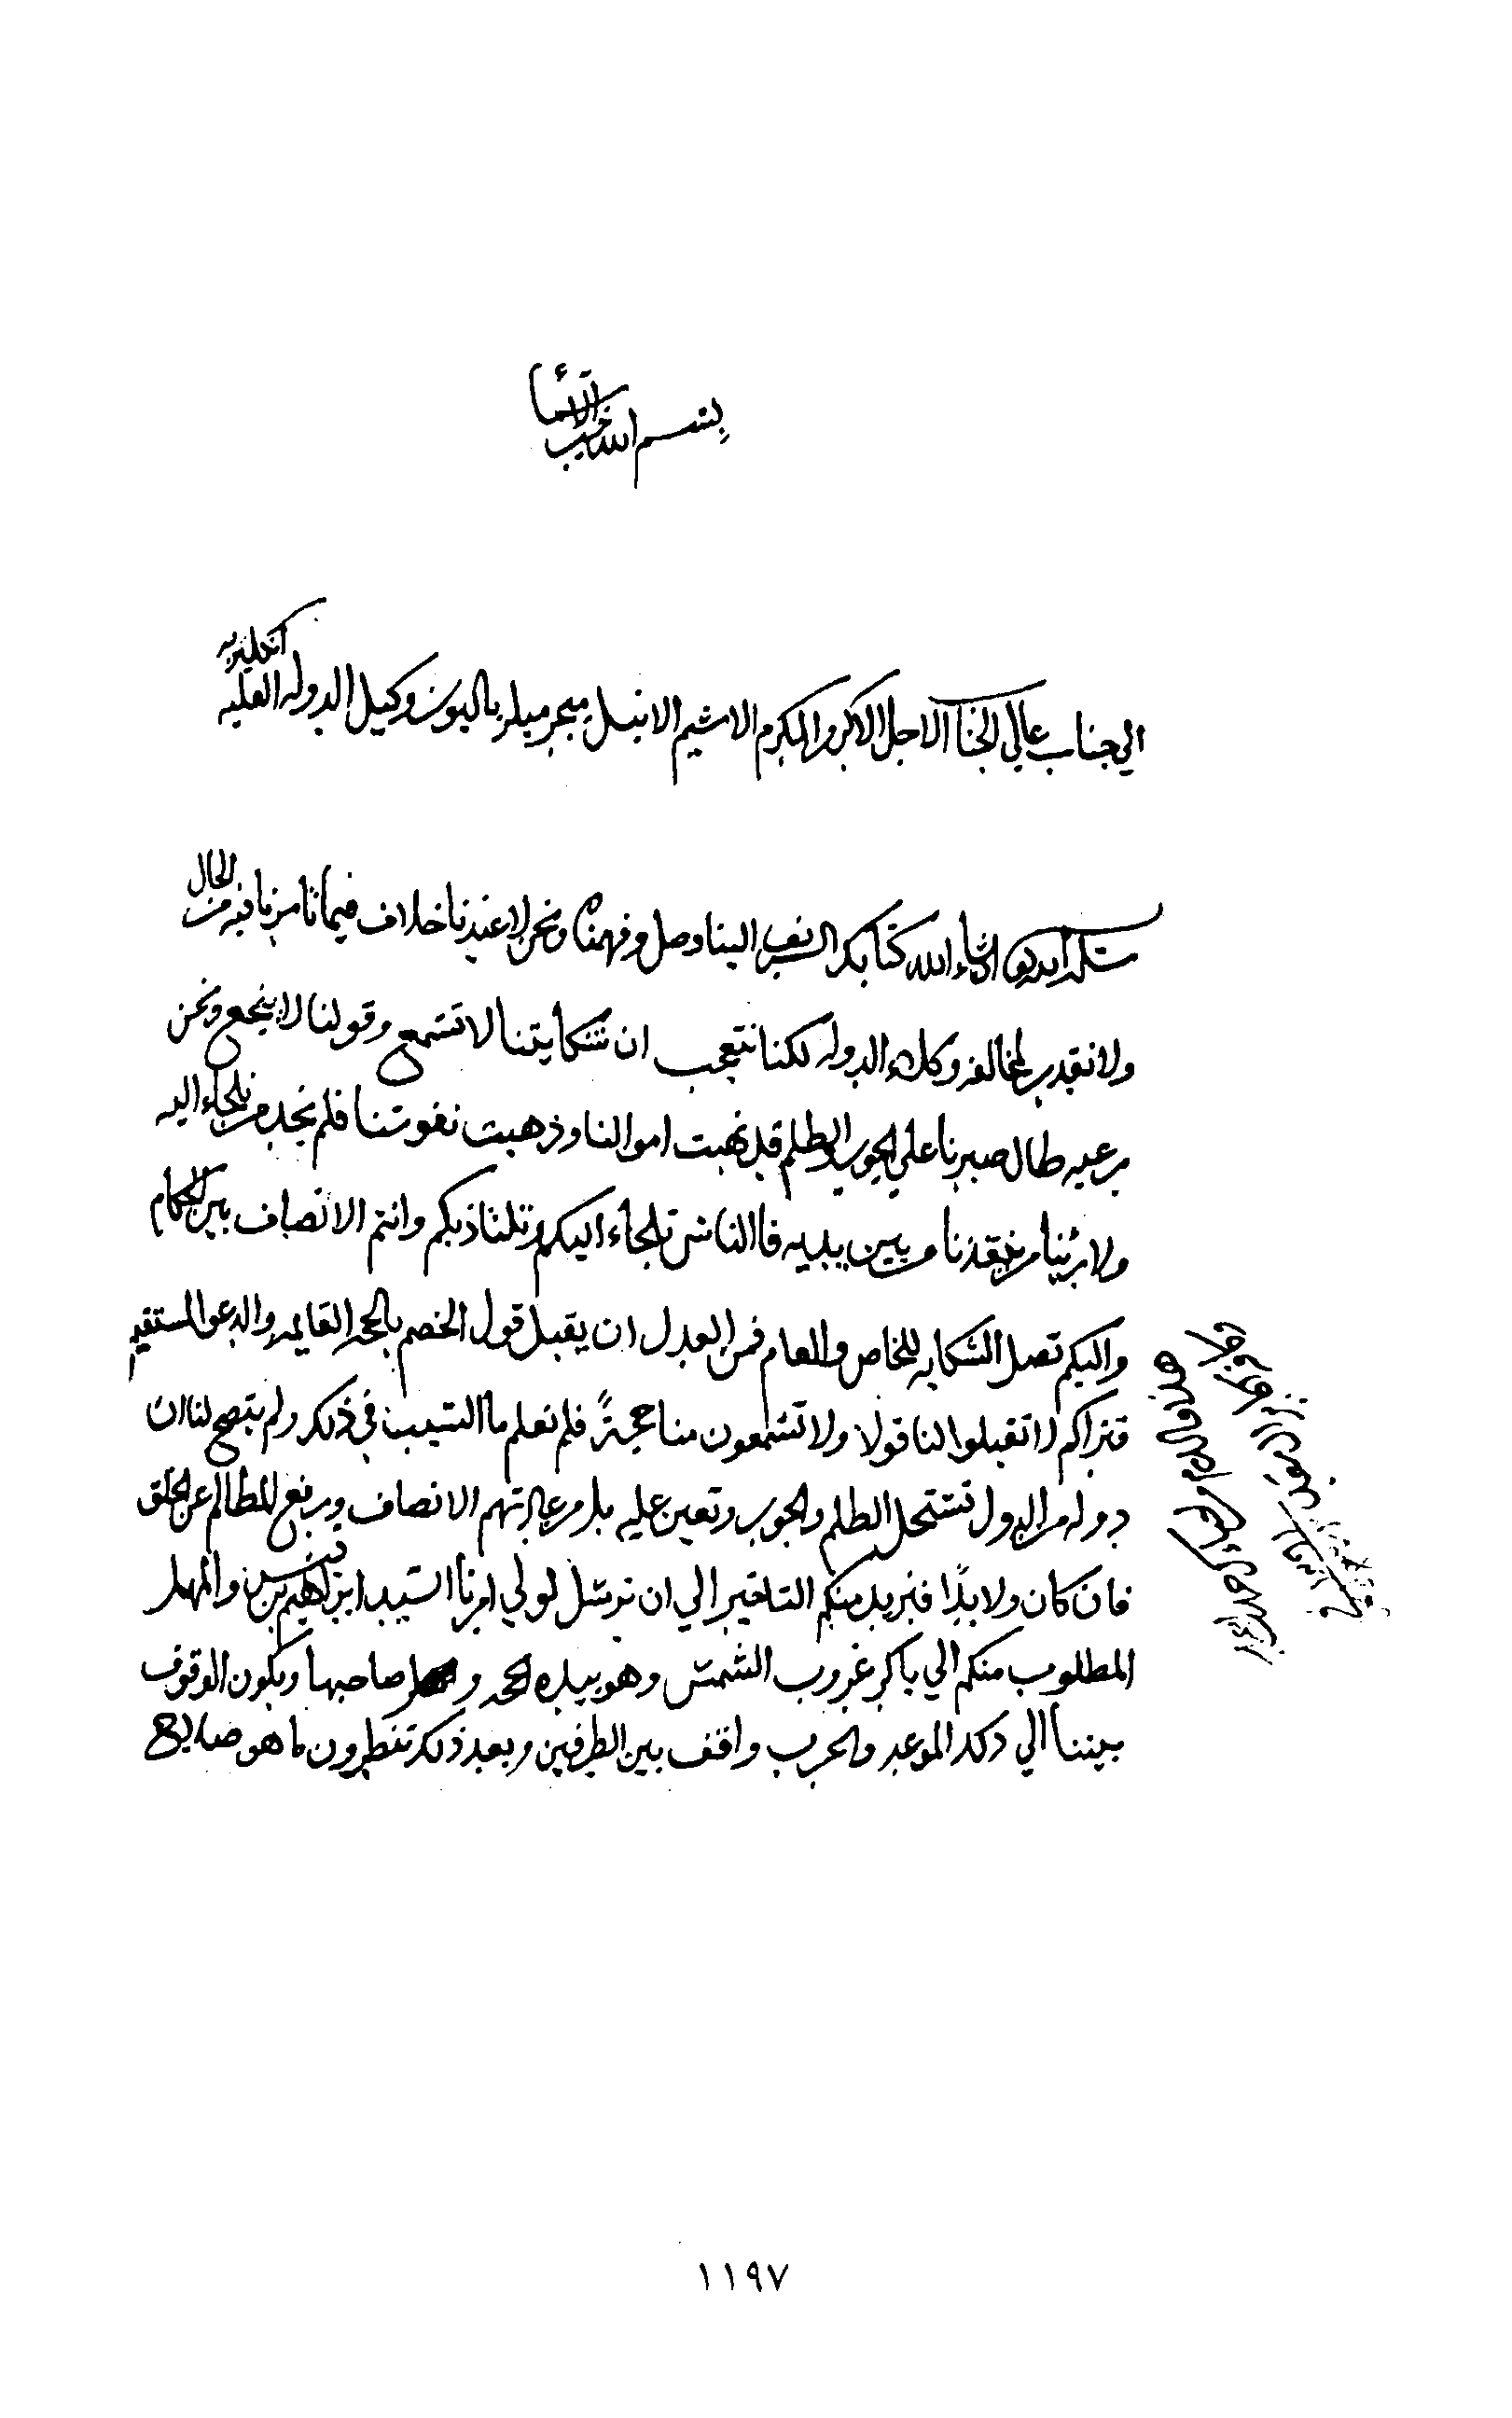 بسم الله خير الاسماء
الي جناب عالي الجناب الاجل الاكبر والمكرم الاشيم الانبل ميجر ميلز باليوز وكيل الدوله العليه انكليزيه
سلمه الله ان شاء الله كتابكم الشريف الينا وصل وفهمناه ونحن لا عندنا خلاف فيما تامرنا فيه من الحال
ولا نقدر لمخالفه وكلاء الدوله لكنا نتعجب ان شكايتنا لا تسمع وقولنا لا ينجع ونحن
رعيه طال صبرنا على الجور والظلم قد نهبت اموالنا وذهبت نفوسنا فلم نجد من نلجاء اليه
ولا رئينا من ينقذنا من بين يديه فا الناس تلجاء اليكم وتلتاذ بكم وانتم الانصاف بين الحكام
واليكم تصل الشكايه للخاص والعام فمن العدل ان يقبل قول الخصم بالحجه القايمه والدعوا المستقيم
فنراكم لا تقبلوا لنا قولا ولا تسمعون منا حجةً فلم نعلم ما السبب في ذلك ولم يتصح لنا ان
دوله من الدول تستحل الظلم والجور وتعين عليه بل من عادتهم الانصاف ورفع المظالم عن الخلق
فان كان ولا بدا فنريد منكم التاخير الي ان نرسل لولي امرنا السيد ابراهيم بن قيس والمهله
المطلوب منكم الي باكر غروب الشمس وهو بيده الحجه و صاحبها ويكون الوقوف
بيننا الي ذلك الموعد والحرب واقف بين الطرفين وبعد ذلك تنظرون ما هو صلايح
هذا والسلام
١١٩٧